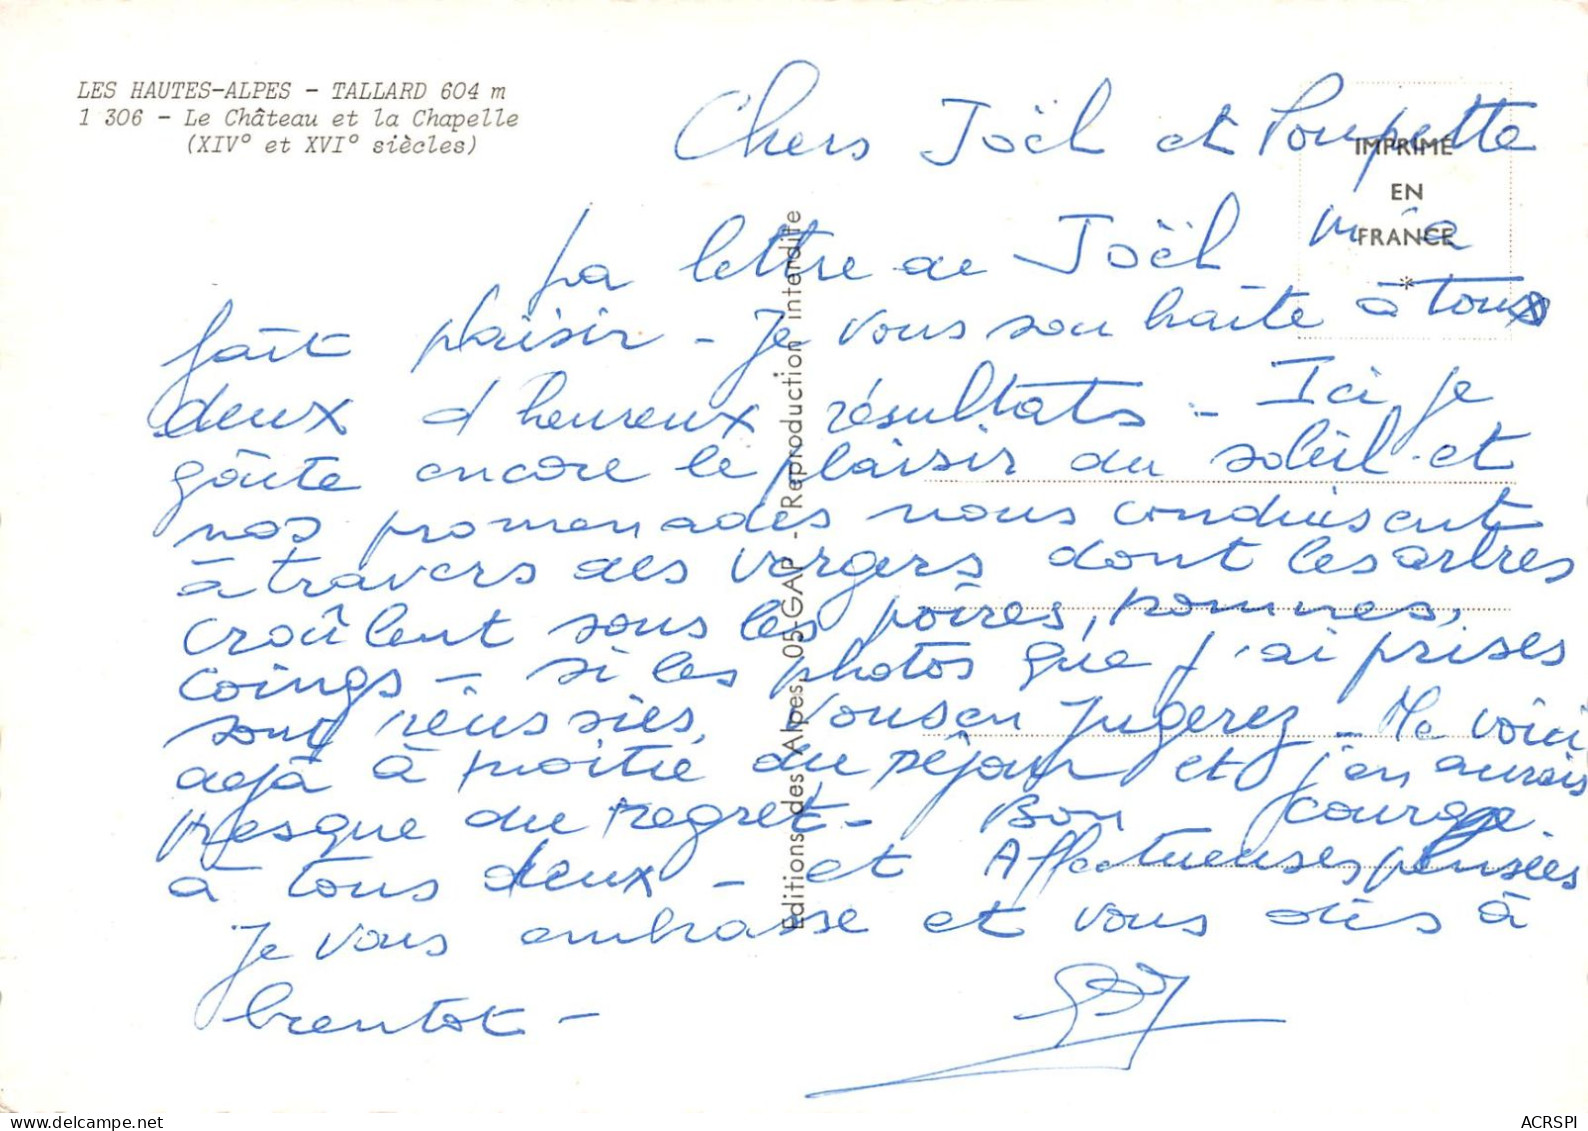 LES HAUTES-ALPES - TALLARD 604 m
1 306 - Le Château et la Chapelle
(XIV° et XVI° siècles)
IMPRIMÉ
EN
FRANCE
*
Editions des Alpes, 05-GAP - Reproduction interdite
Chers Joël et Poupette
La lettre de Joël m'a
fait plaisir - Je vous souhaite à tous
deux d'heureux résultats - Ici je
goûte encore le plaisir du soleil et
nos promenades nous conduisent
à travers des vergers dont les arbres
croûlent sous les poires, pommes,
coings - si les photos que j'ai prises
sont réussies, vous en jugerez - Me voici
dejà à moitié du séjour et j'en aurais
presque du regret - Bon courage
à tous deux - et Affectueuses pensées
Je vous embrasse et vous dis à
bientot -
delcampe.net
ACRSPI